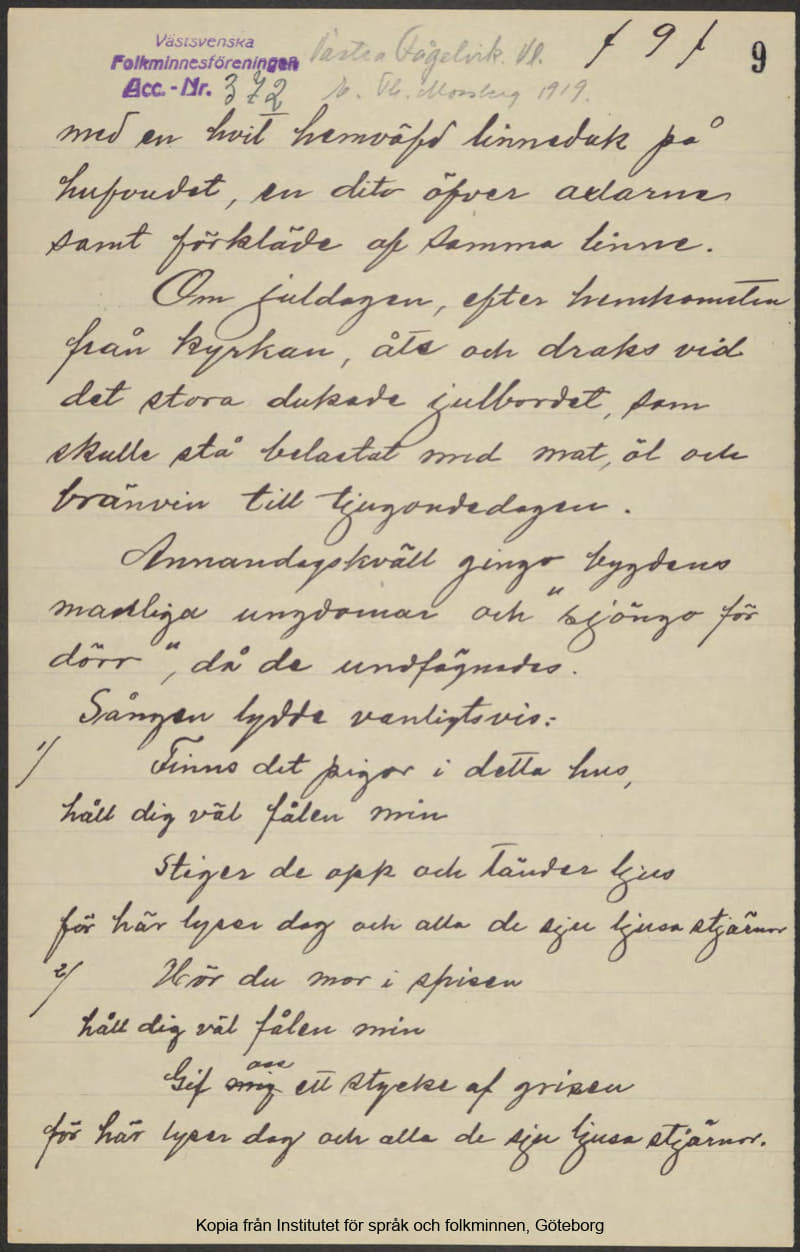 Västsvenska
Folkminnesföreningen
Acc.-Nr. 372
Västra Fågelvik. Vl.
1919.
/ 9 /
9
med en hvit hemväfd linneduk på
hufvudet, en dito öfver axlarne
samt förkläde af samma linne.
Om juldagen, efter hemkomsten
från kyrkan, åts och draks vid
det stora dukade julbordet, som
skulle stå belastat med mat, öl och
bränvin till tjugondedagen.
Annandagskväll gingo bygdens
manliga ungdomar och "sjöngo för
dörr", då de undfägnades.
Sången lydde vanligtvis:
1/ Finns det pigor i detta hus,
håll dig väl fålen min
Stiger de opp och tänder ljus
för här lyser dag och alla de sju ljusa stjärnor
2/ Hör du mor i spisen
håll dig väl fålen min
Gif mig oss ett stycke af grisen
för här lyser dag och alla de sju ljusa stjärnor.
Kopia från Institutet för språk och folkminnen, Göteborg